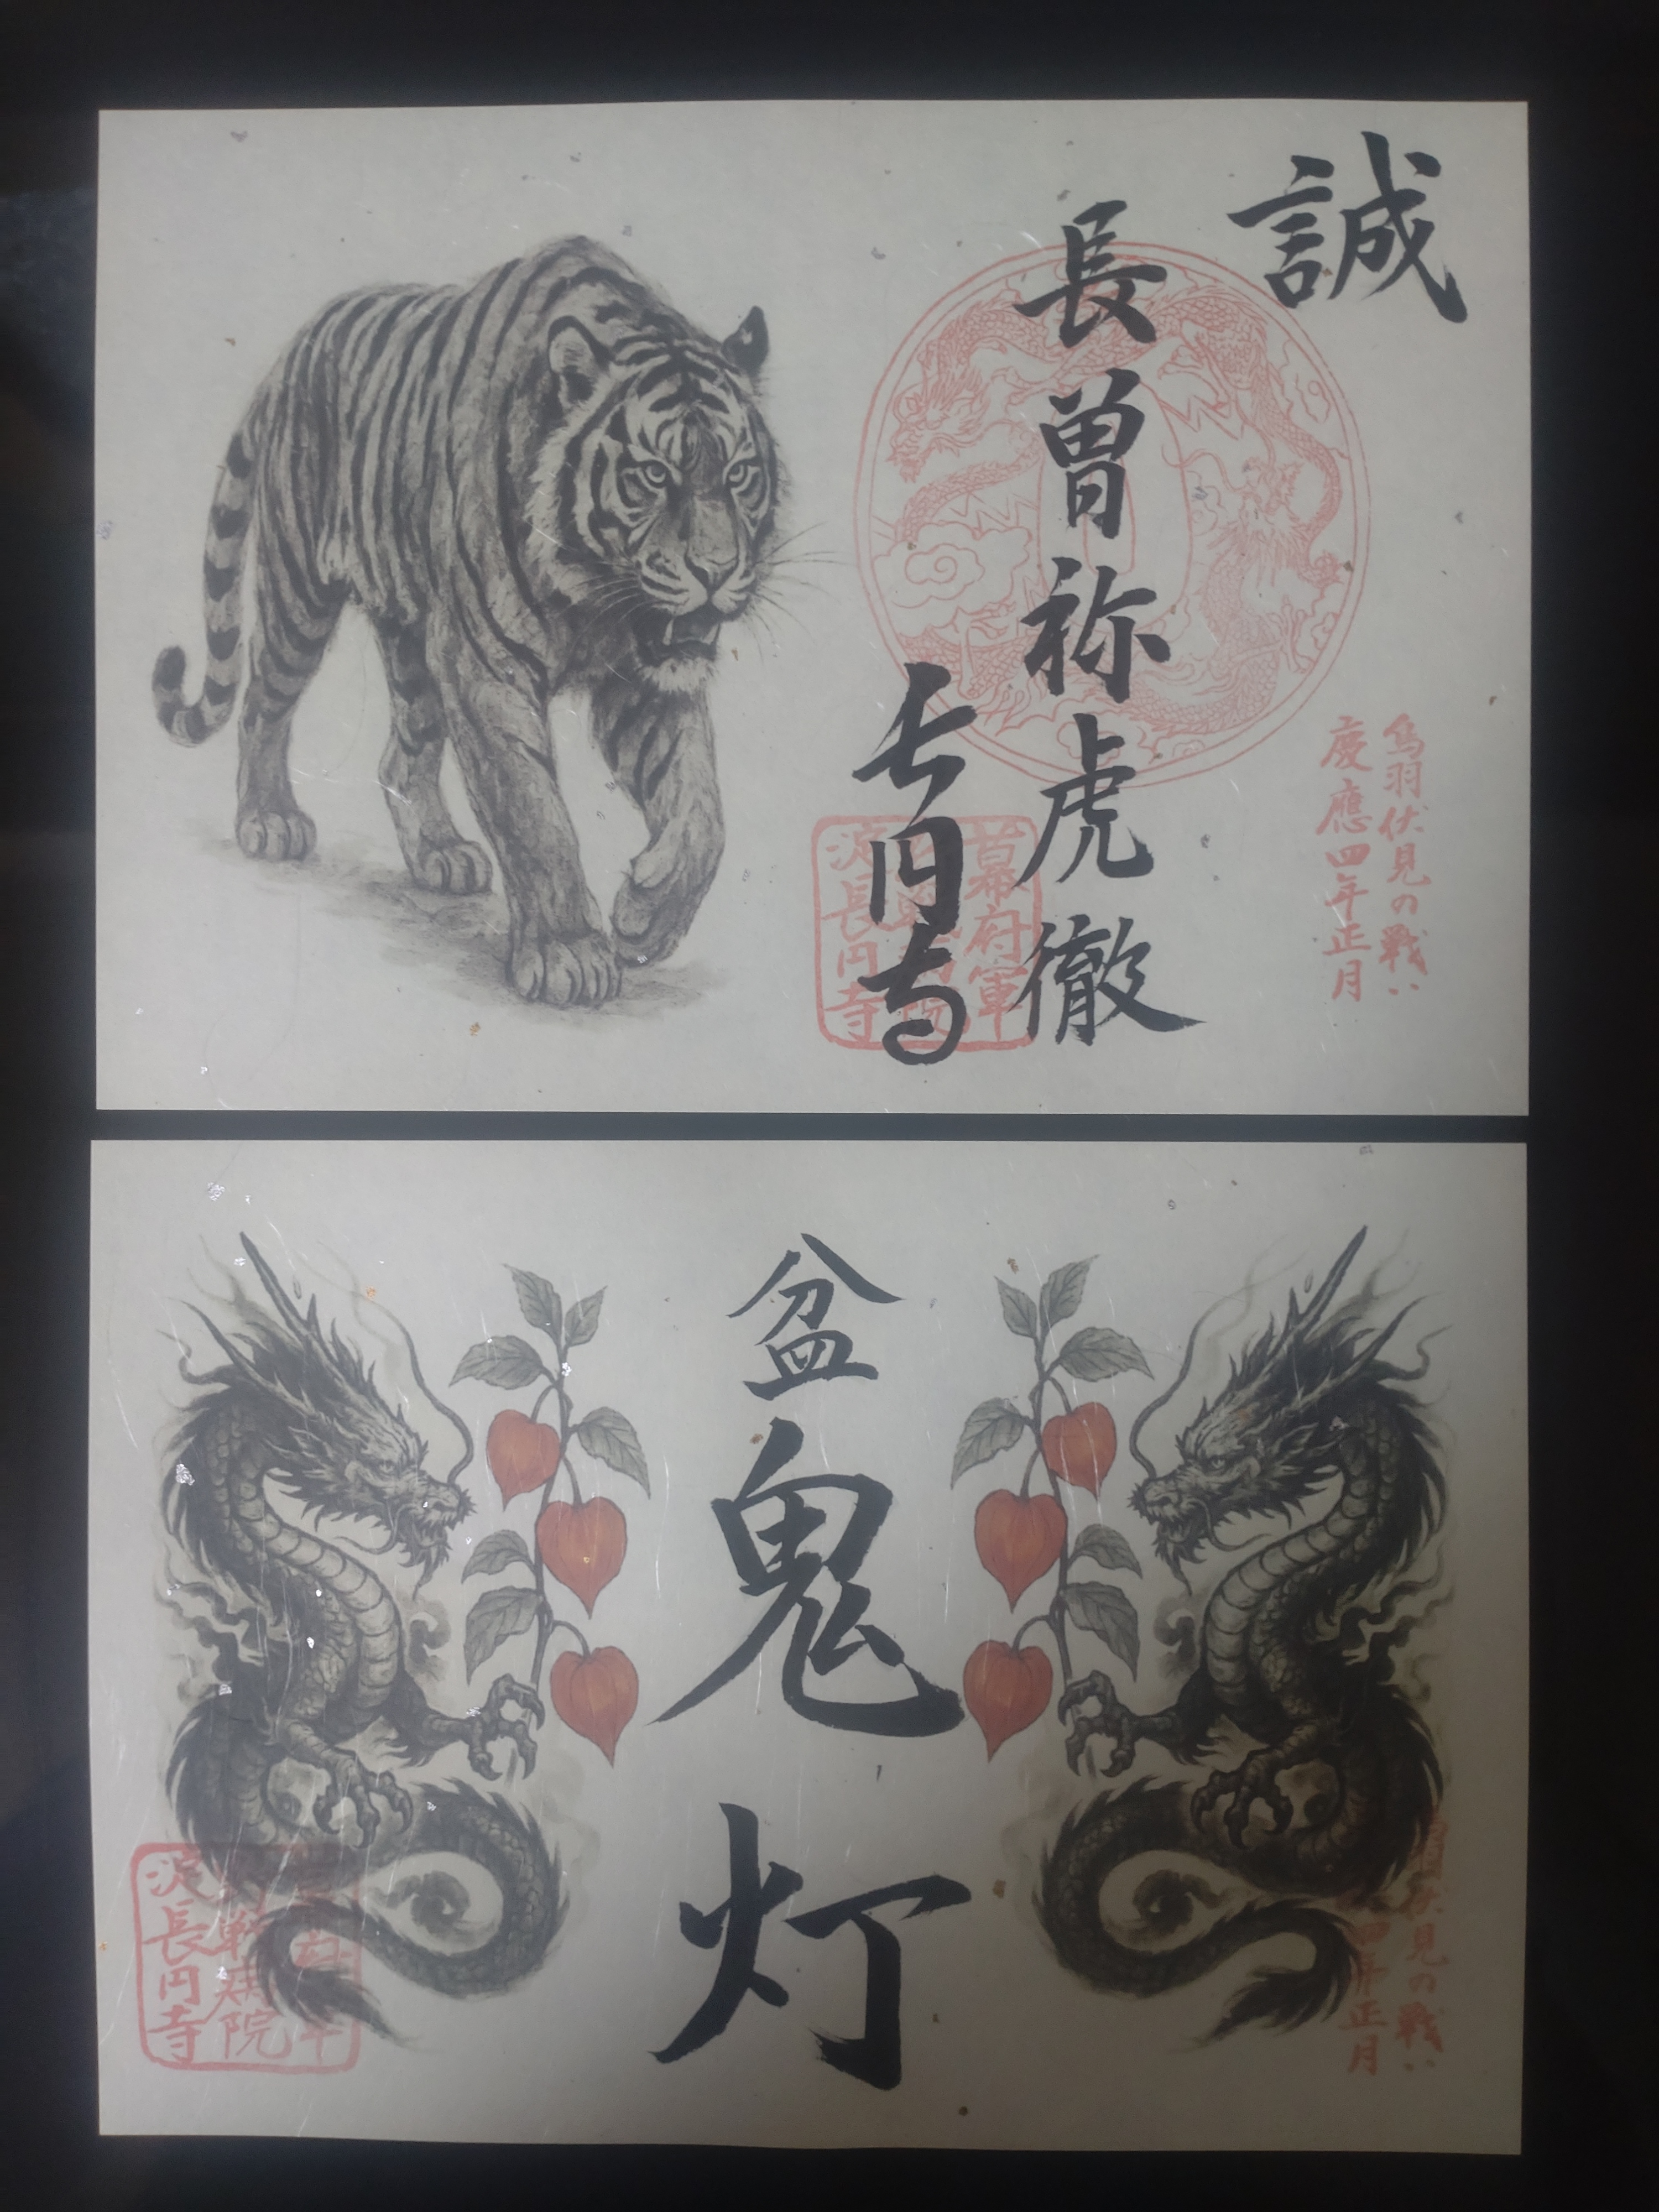 誠
鳥羽伏見の戦い
慶應四年正月
長曽祢虎徹
長円寺
幕府軍
淀長円寺
盆鬼灯
伏見の戦い
四年正月
院
淀長円寺